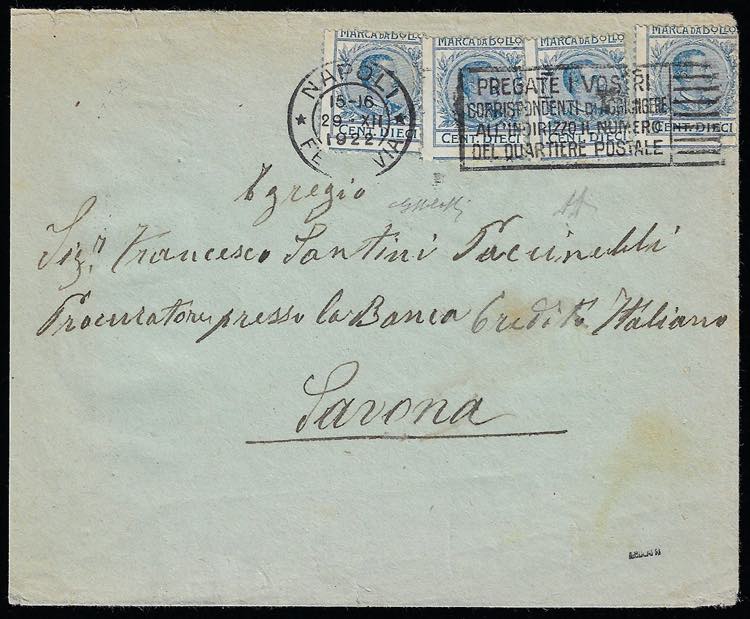 MARCA DA BOLLO MARCA DA BOLLO MARCA DA BOLLO MARCA DA BOLLO
CENT. DIECI CENT. DIECI CENT. CENT. DIECI
NAPOLI
15-16
29·XII
1922
FE VIA
PREGATE I VOSTRI
CORRISPONDENTI DI AGGIUNGERE
ALL'INDIRIZZO IL NUMERO
DEL QUARTIERE POSTALE
Egregio
Sig.r Francesco Santini Paccinelli
Procuratore presso la Banca Credito Italiano
Savona